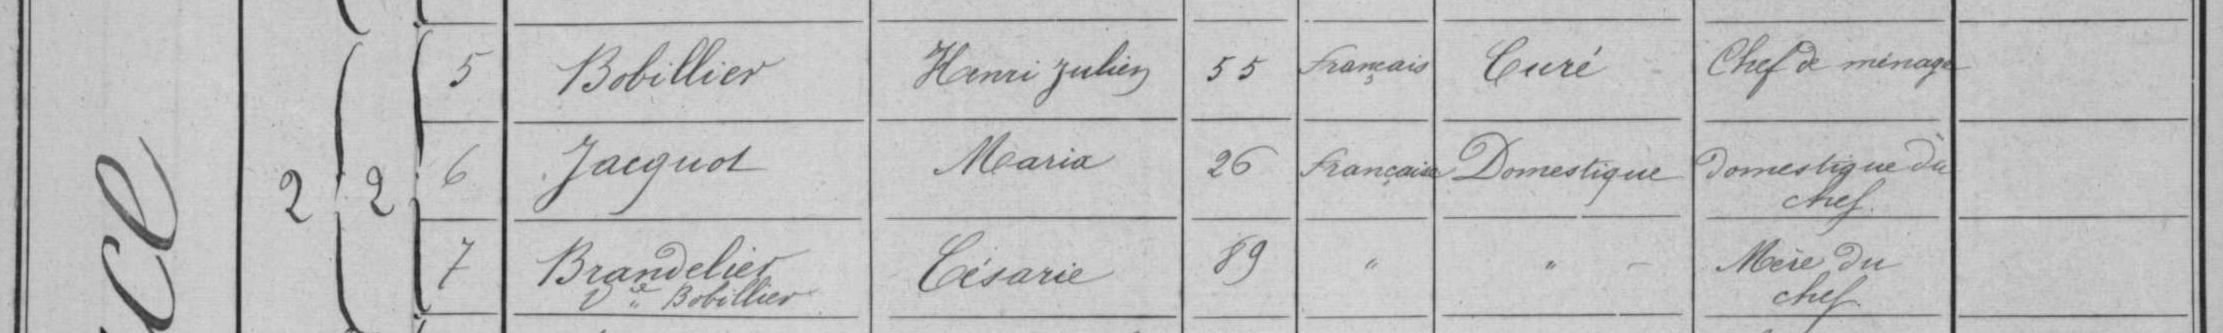 5 Bobillier Henri Julien 55 Français Curé Chef de ménage
2 2 6 Jacquot Maria 26 Française Domestique domestique du
chef.
7 Brandelier Césarie 89 " " - Mère du
Vve Bobillier chef